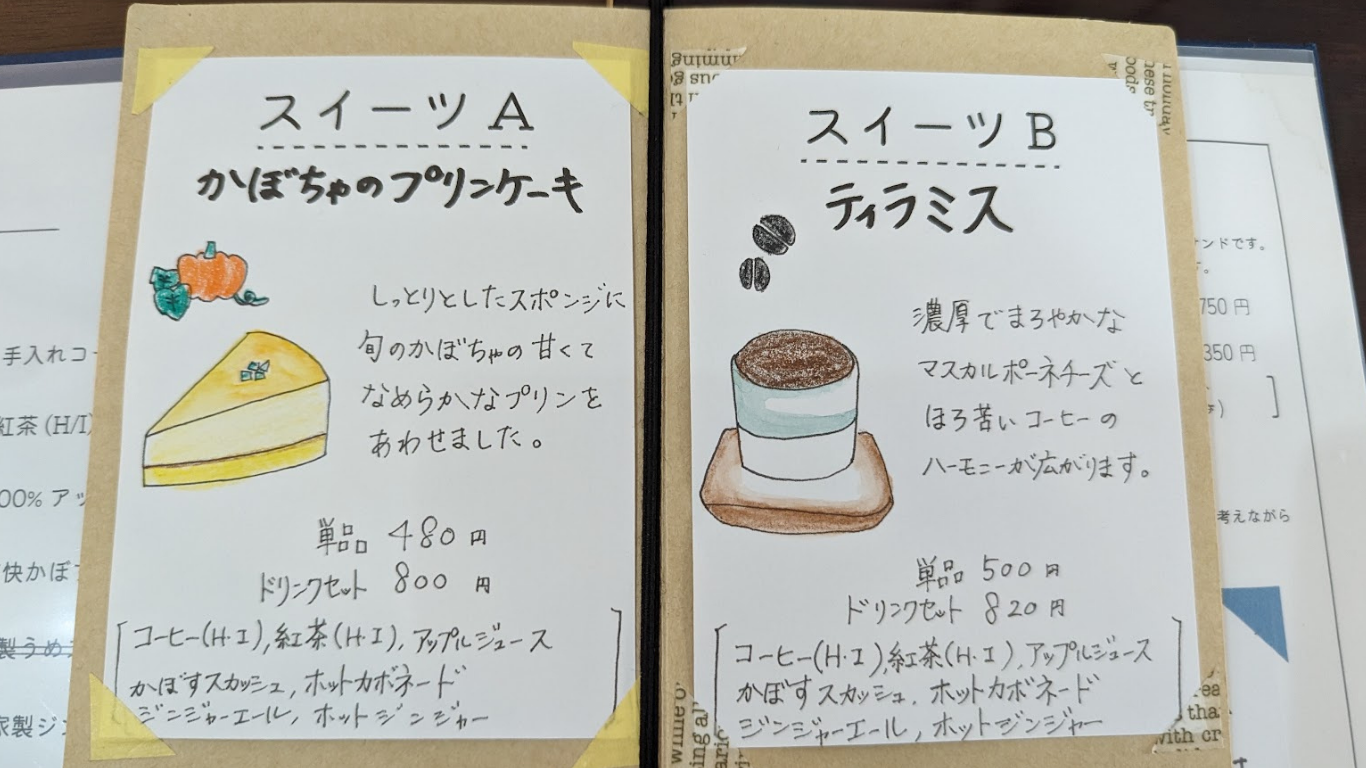 スイーツ A
かぼちゃのプリンケーキ
しっとりとしたスポンジに
旬のかぼちゃの甘くて
なめらかなプリンを
あわせました。
単品 480 円
ドリンクセット 800 円
コーヒー(H・I), 紅茶(H・I), アップルジュース
かぼすスカッシュ, ホットカボネード
ジンジャーエール, ホットジンジャー
スイーツ B
ティラミス
濃厚でまろやかな
マスカルポーネチーズと
ほろ苦いコーヒーの
ハーモニーが広がります。
単品 500 円
ドリンクセット 820 円
コーヒー(H・I), 紅茶(H・I), アップルジュース
かぼすスカッシュ, ホットカボネード
ジンジャーエール, ホットジンジャー
手入れコ
紅茶 (H/I)
00% アッ
快かぼ
製うめ
家製ジ
ンドです。
す。
750 円
350 円
考えながら